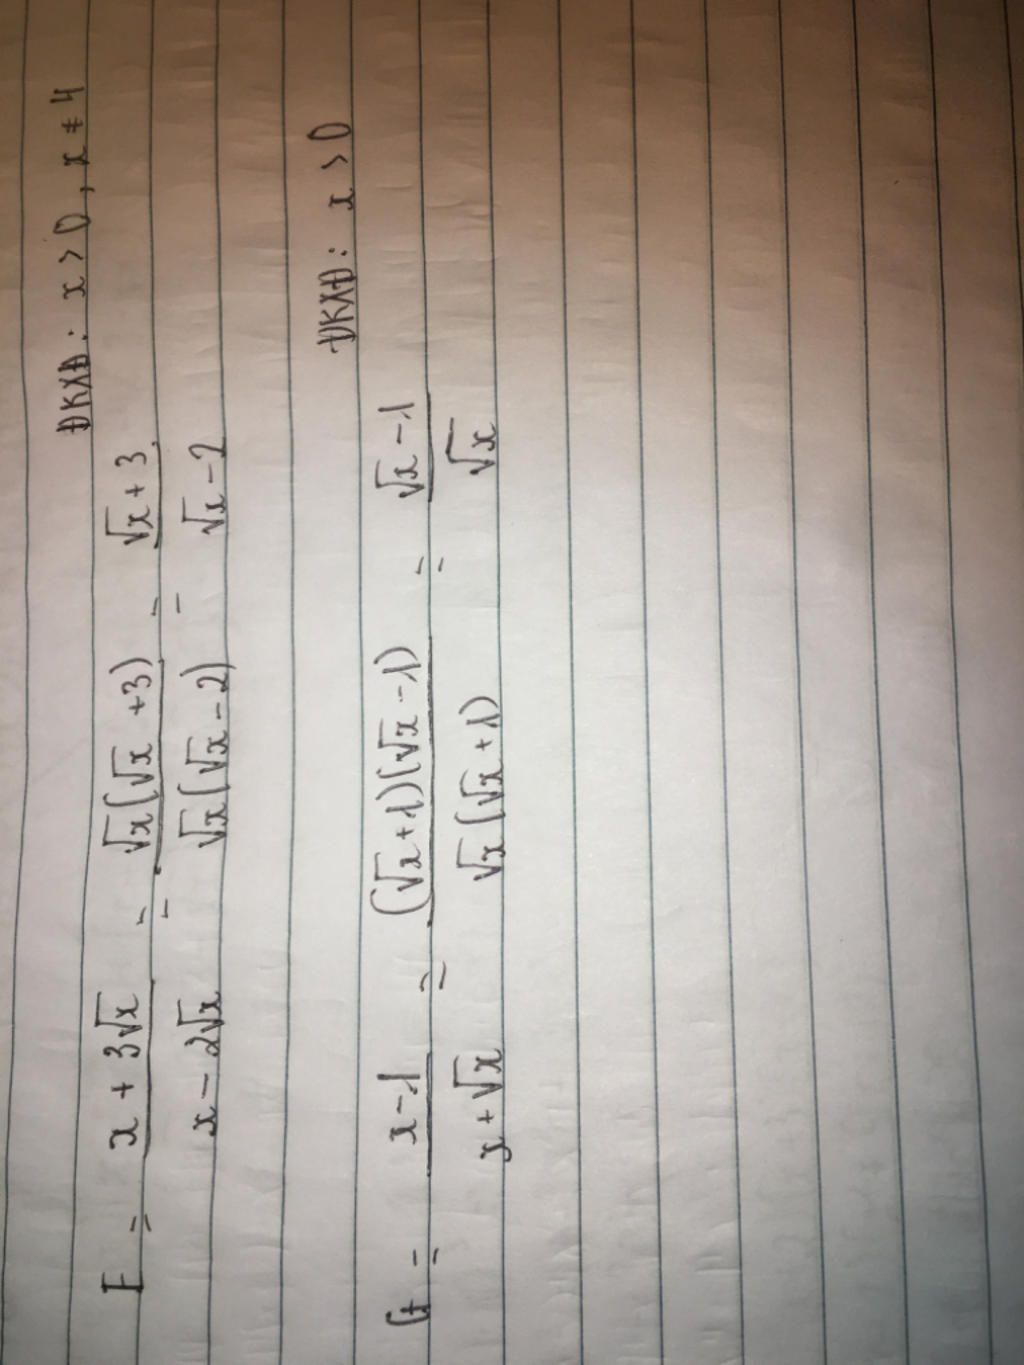 ĐKXĐ: x > 0, x ≠ 4
F = (x + 3√x)/(x - 2√x) = (√x(√x + 3))/(√x(√x - 2)) = (√x + 3)/(√x - 2)
ĐKXĐ: x > 0
G = (x - 1)/(x + √x) = ((√x + 1)(√x - 1))/(√x(√x + 1)) = (√x - 1)/√x